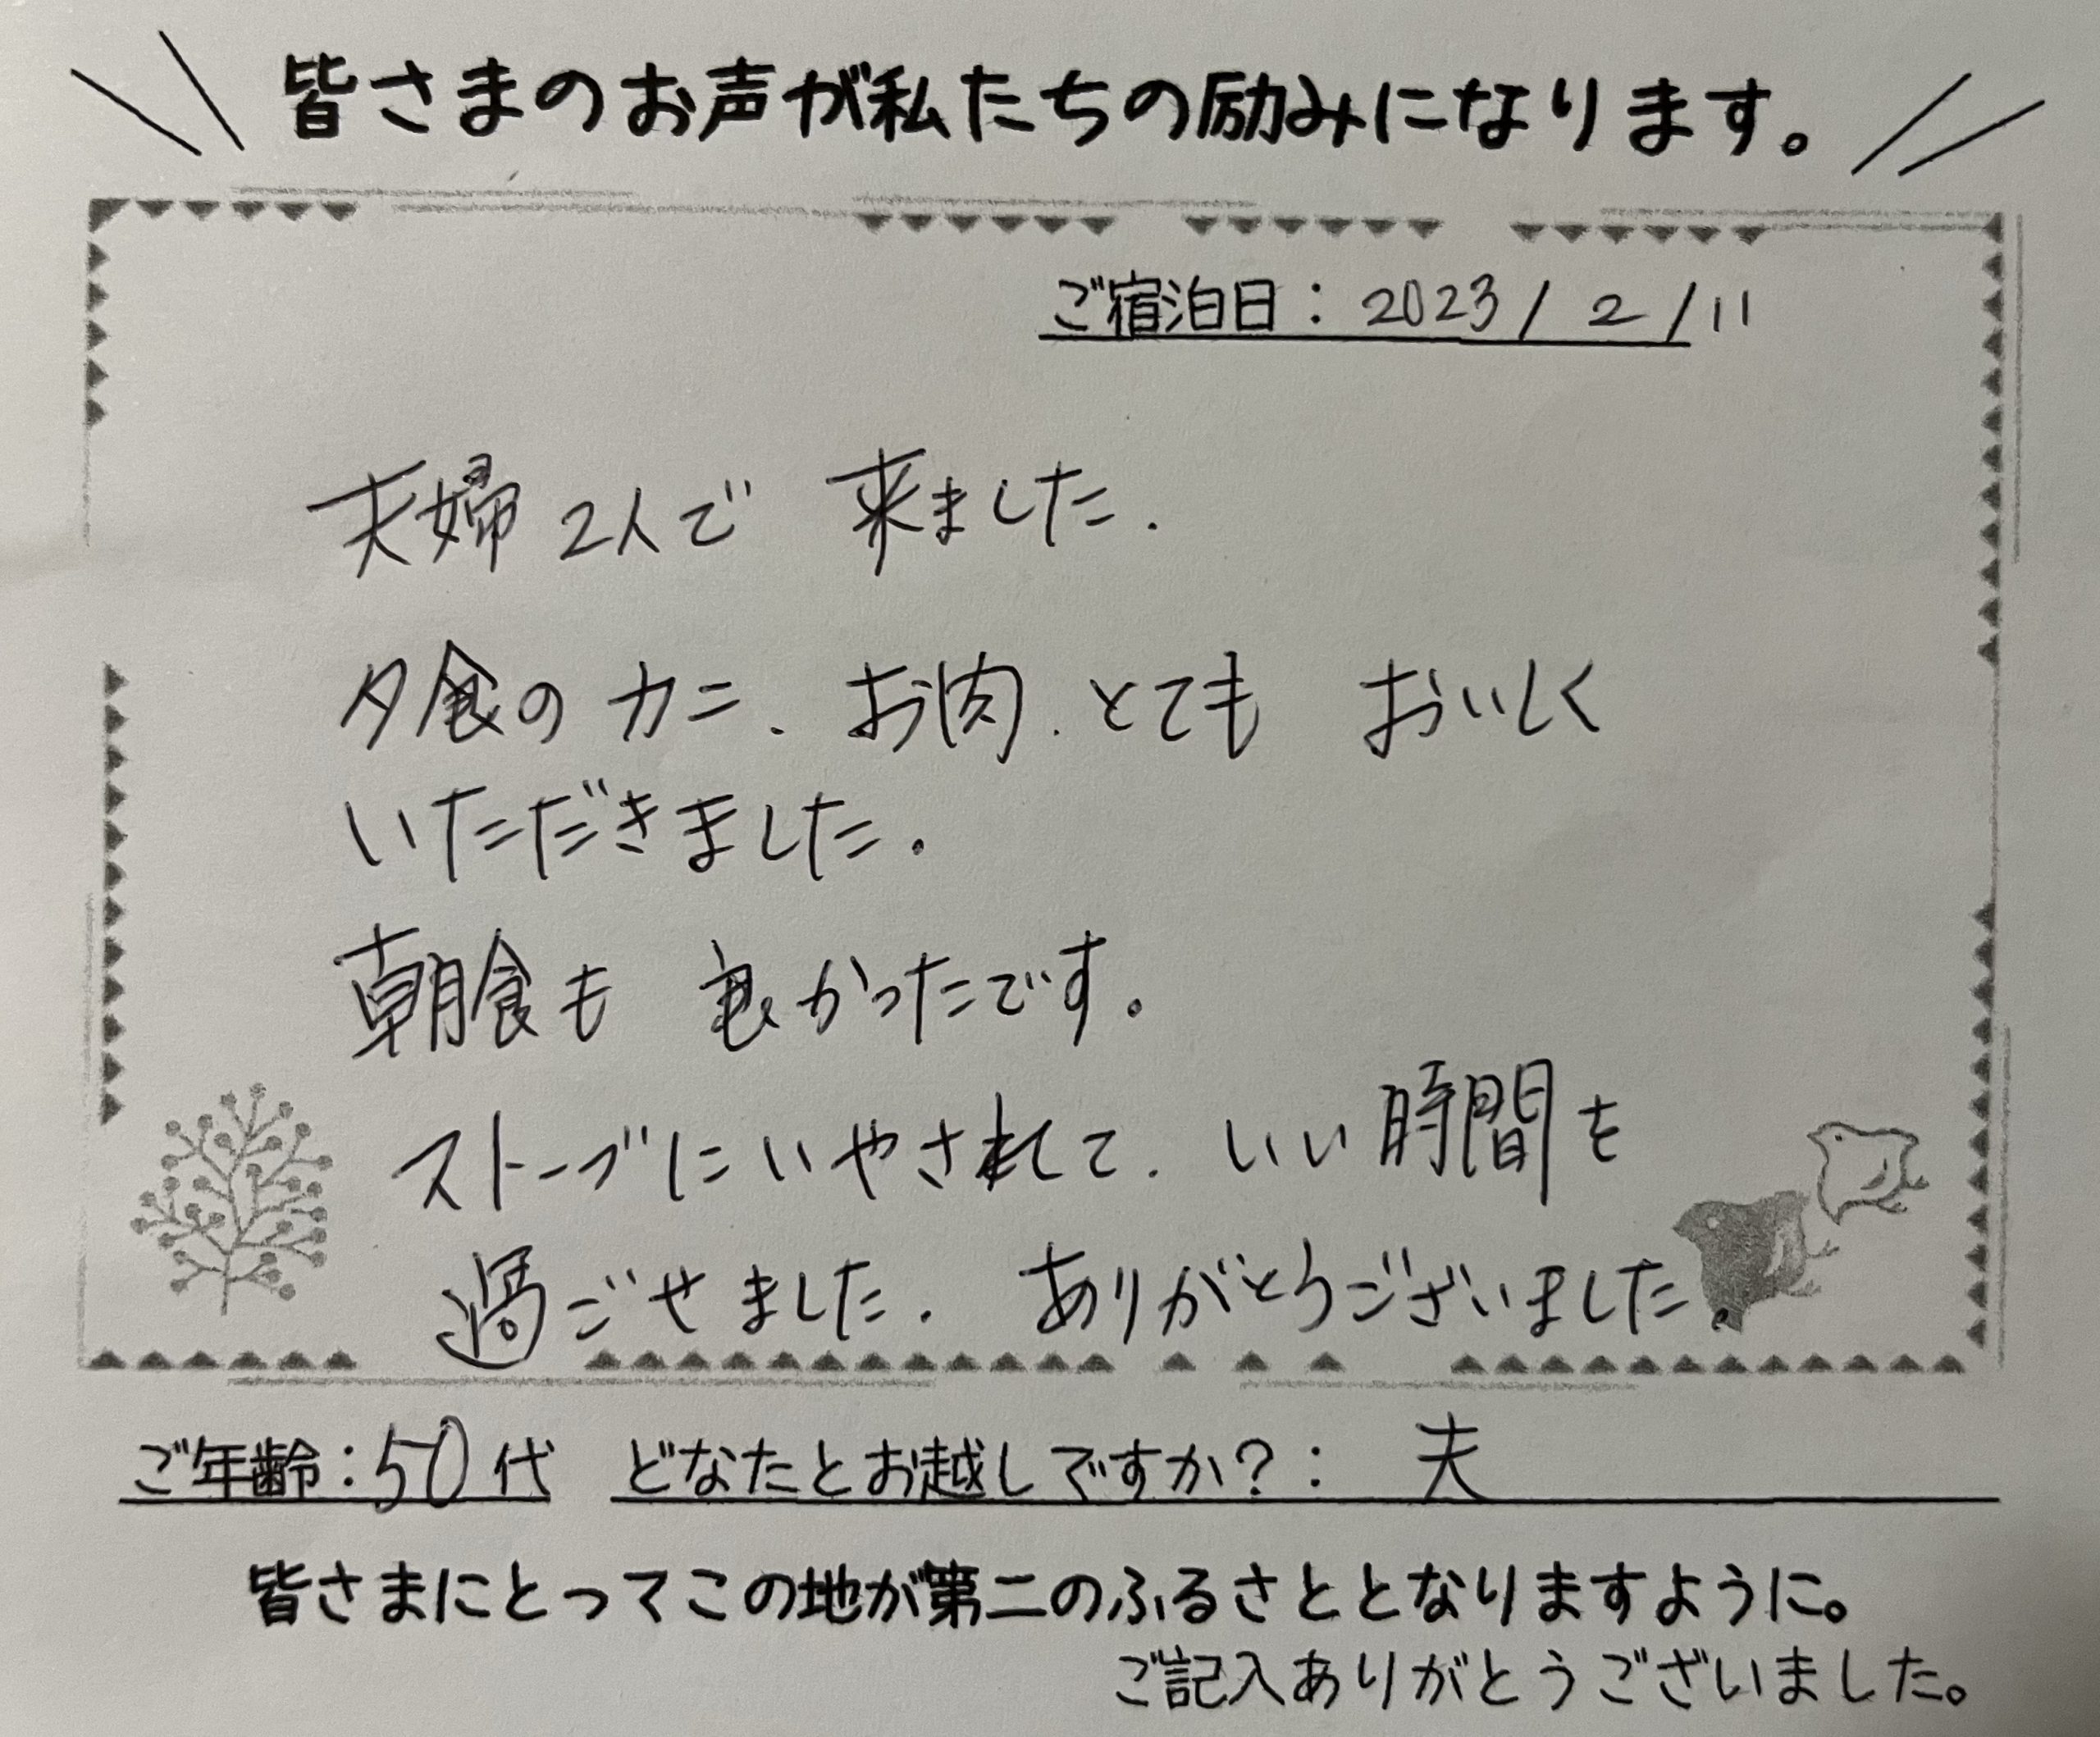 皆さまのお声が私たちの励みになります。
ご宿泊日：2023/2/11
夫婦2人で 来ました.
夕食の カニ、お肉、とても おいしく
いただきました.
朝食も 良かったです。
ストーブにいやされて、いい時間を
過ごせました. ありがとうございました.
ご年齢：50代 どなたとお越しですか？： 夫
皆さまにとってこの地が第二のふるさととなりますように。
ご記入ありがとうございました。